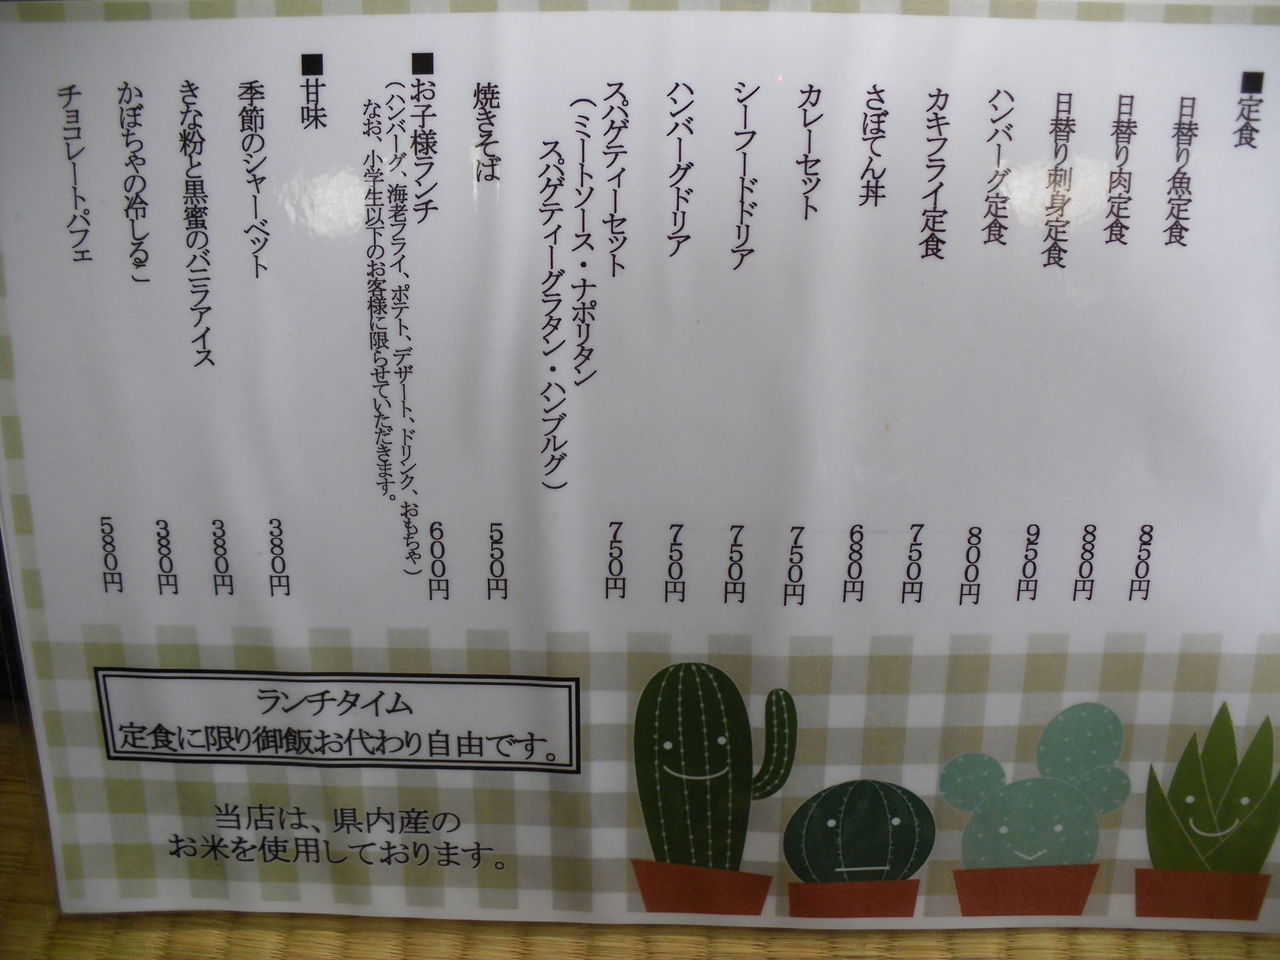 ■定食
日替り魚定食 850円
日替り肉定食 880円
日替り刺身定食 950円
ハンバーグ定食 800円
カキフライ定食 750円
さぼてん丼 680円
カレーセット 750円
シーフードドリア 750円
ハンバーグドリア 750円
スパゲティーセット 750円
(ミートソース・ナポリタン
スパゲティーグラタン・ハンブルグ)
焼きそば 550円
■お子様ランチ 600円
(ハンバーグ、海老フライ、ポテト、デザート、ドリンク、おもちゃ)
なお、小学生以下のお客様に限らせていただきます。
■甘味
季節のシャーベット 380円
きな粉と黒蜜のバニラアイス 380円
かぼちゃの冷しるこ 380円
チョコレートパフェ 580円
ランチタイム
定食に限り御飯お代わり自由です。
当店は、県内産の
お米を使用しております。